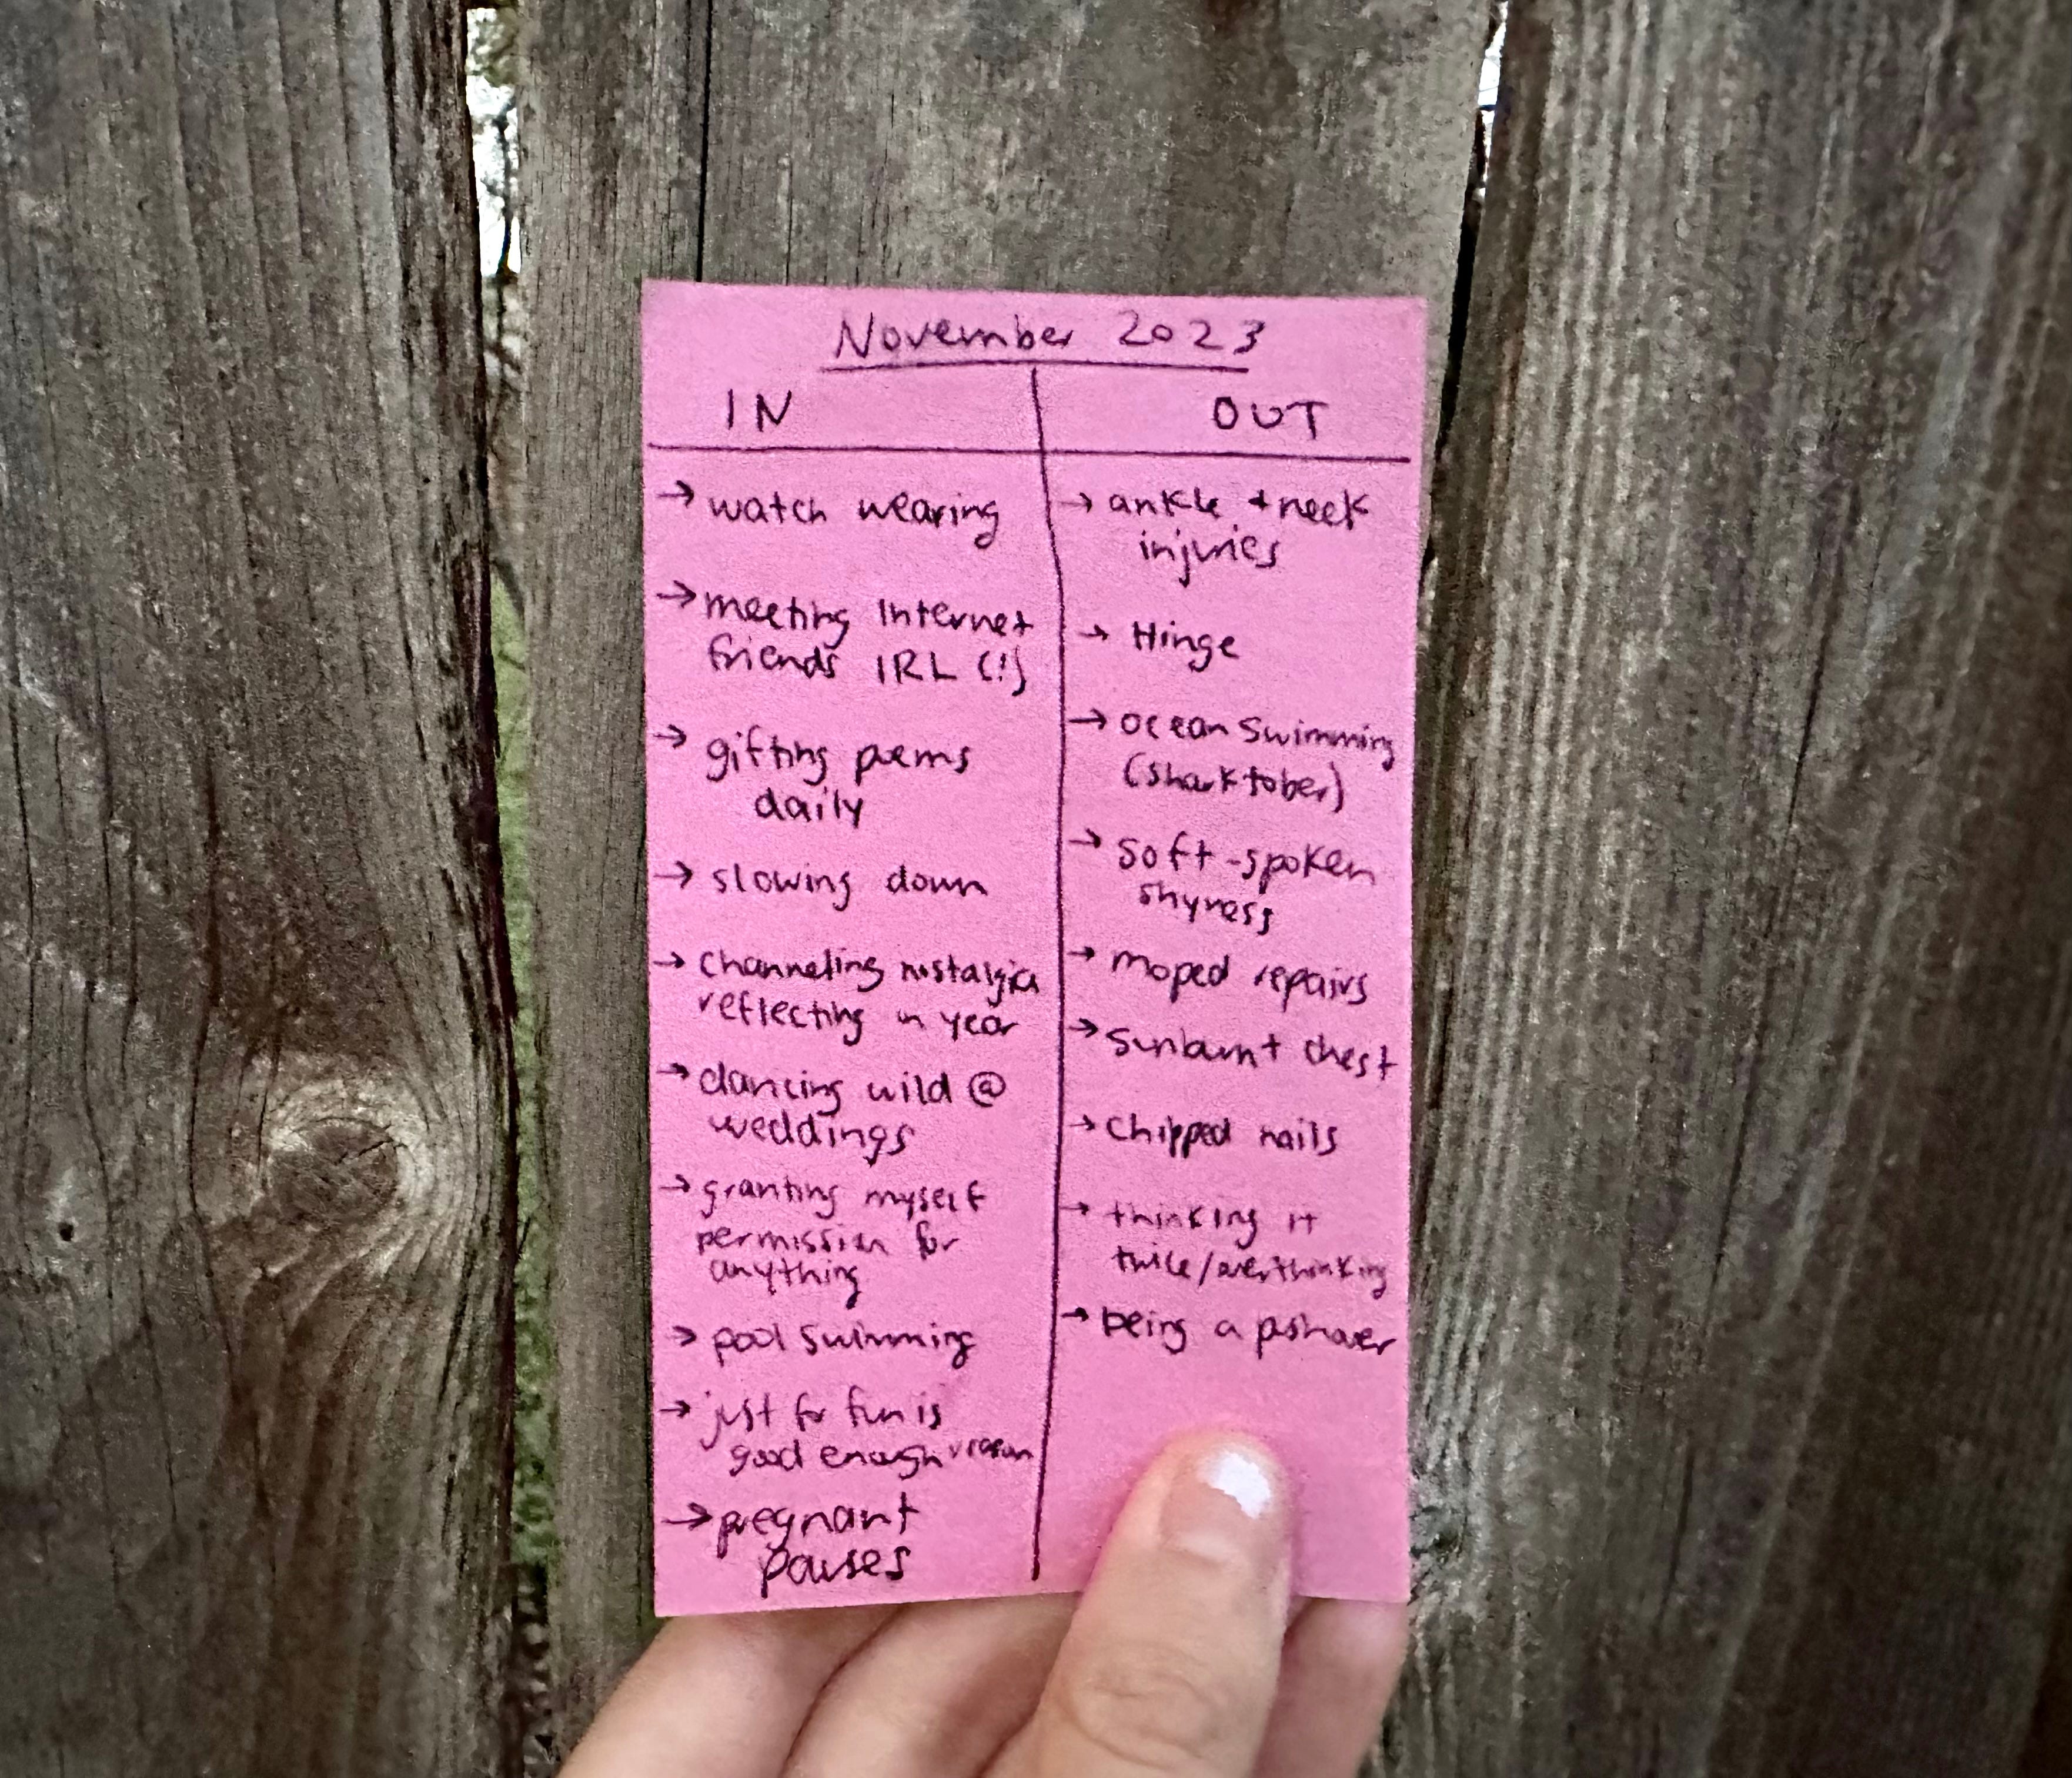 November 2023
IN
→ watch wearing
→ meeting internet
friends IRL (!)
→ gifting poems
daily
→ slowing down
→ channeling nostalgia
reflecting on year
→ dancing wild @
weddings
→ granting myself
permission for
anything
→ pool swimming
→ just for fun is
good enough reason
→ pregnant
pauses
OUT
→ ankle + neck
injuries
→ Hinge
→ ocean swimming
(sharktober)
→ soft-spoken
shyness
→ moped repairs
→ sunburnt chest
→ chipped nails
→ thinking it
twice/overthinking
→ being a pushover